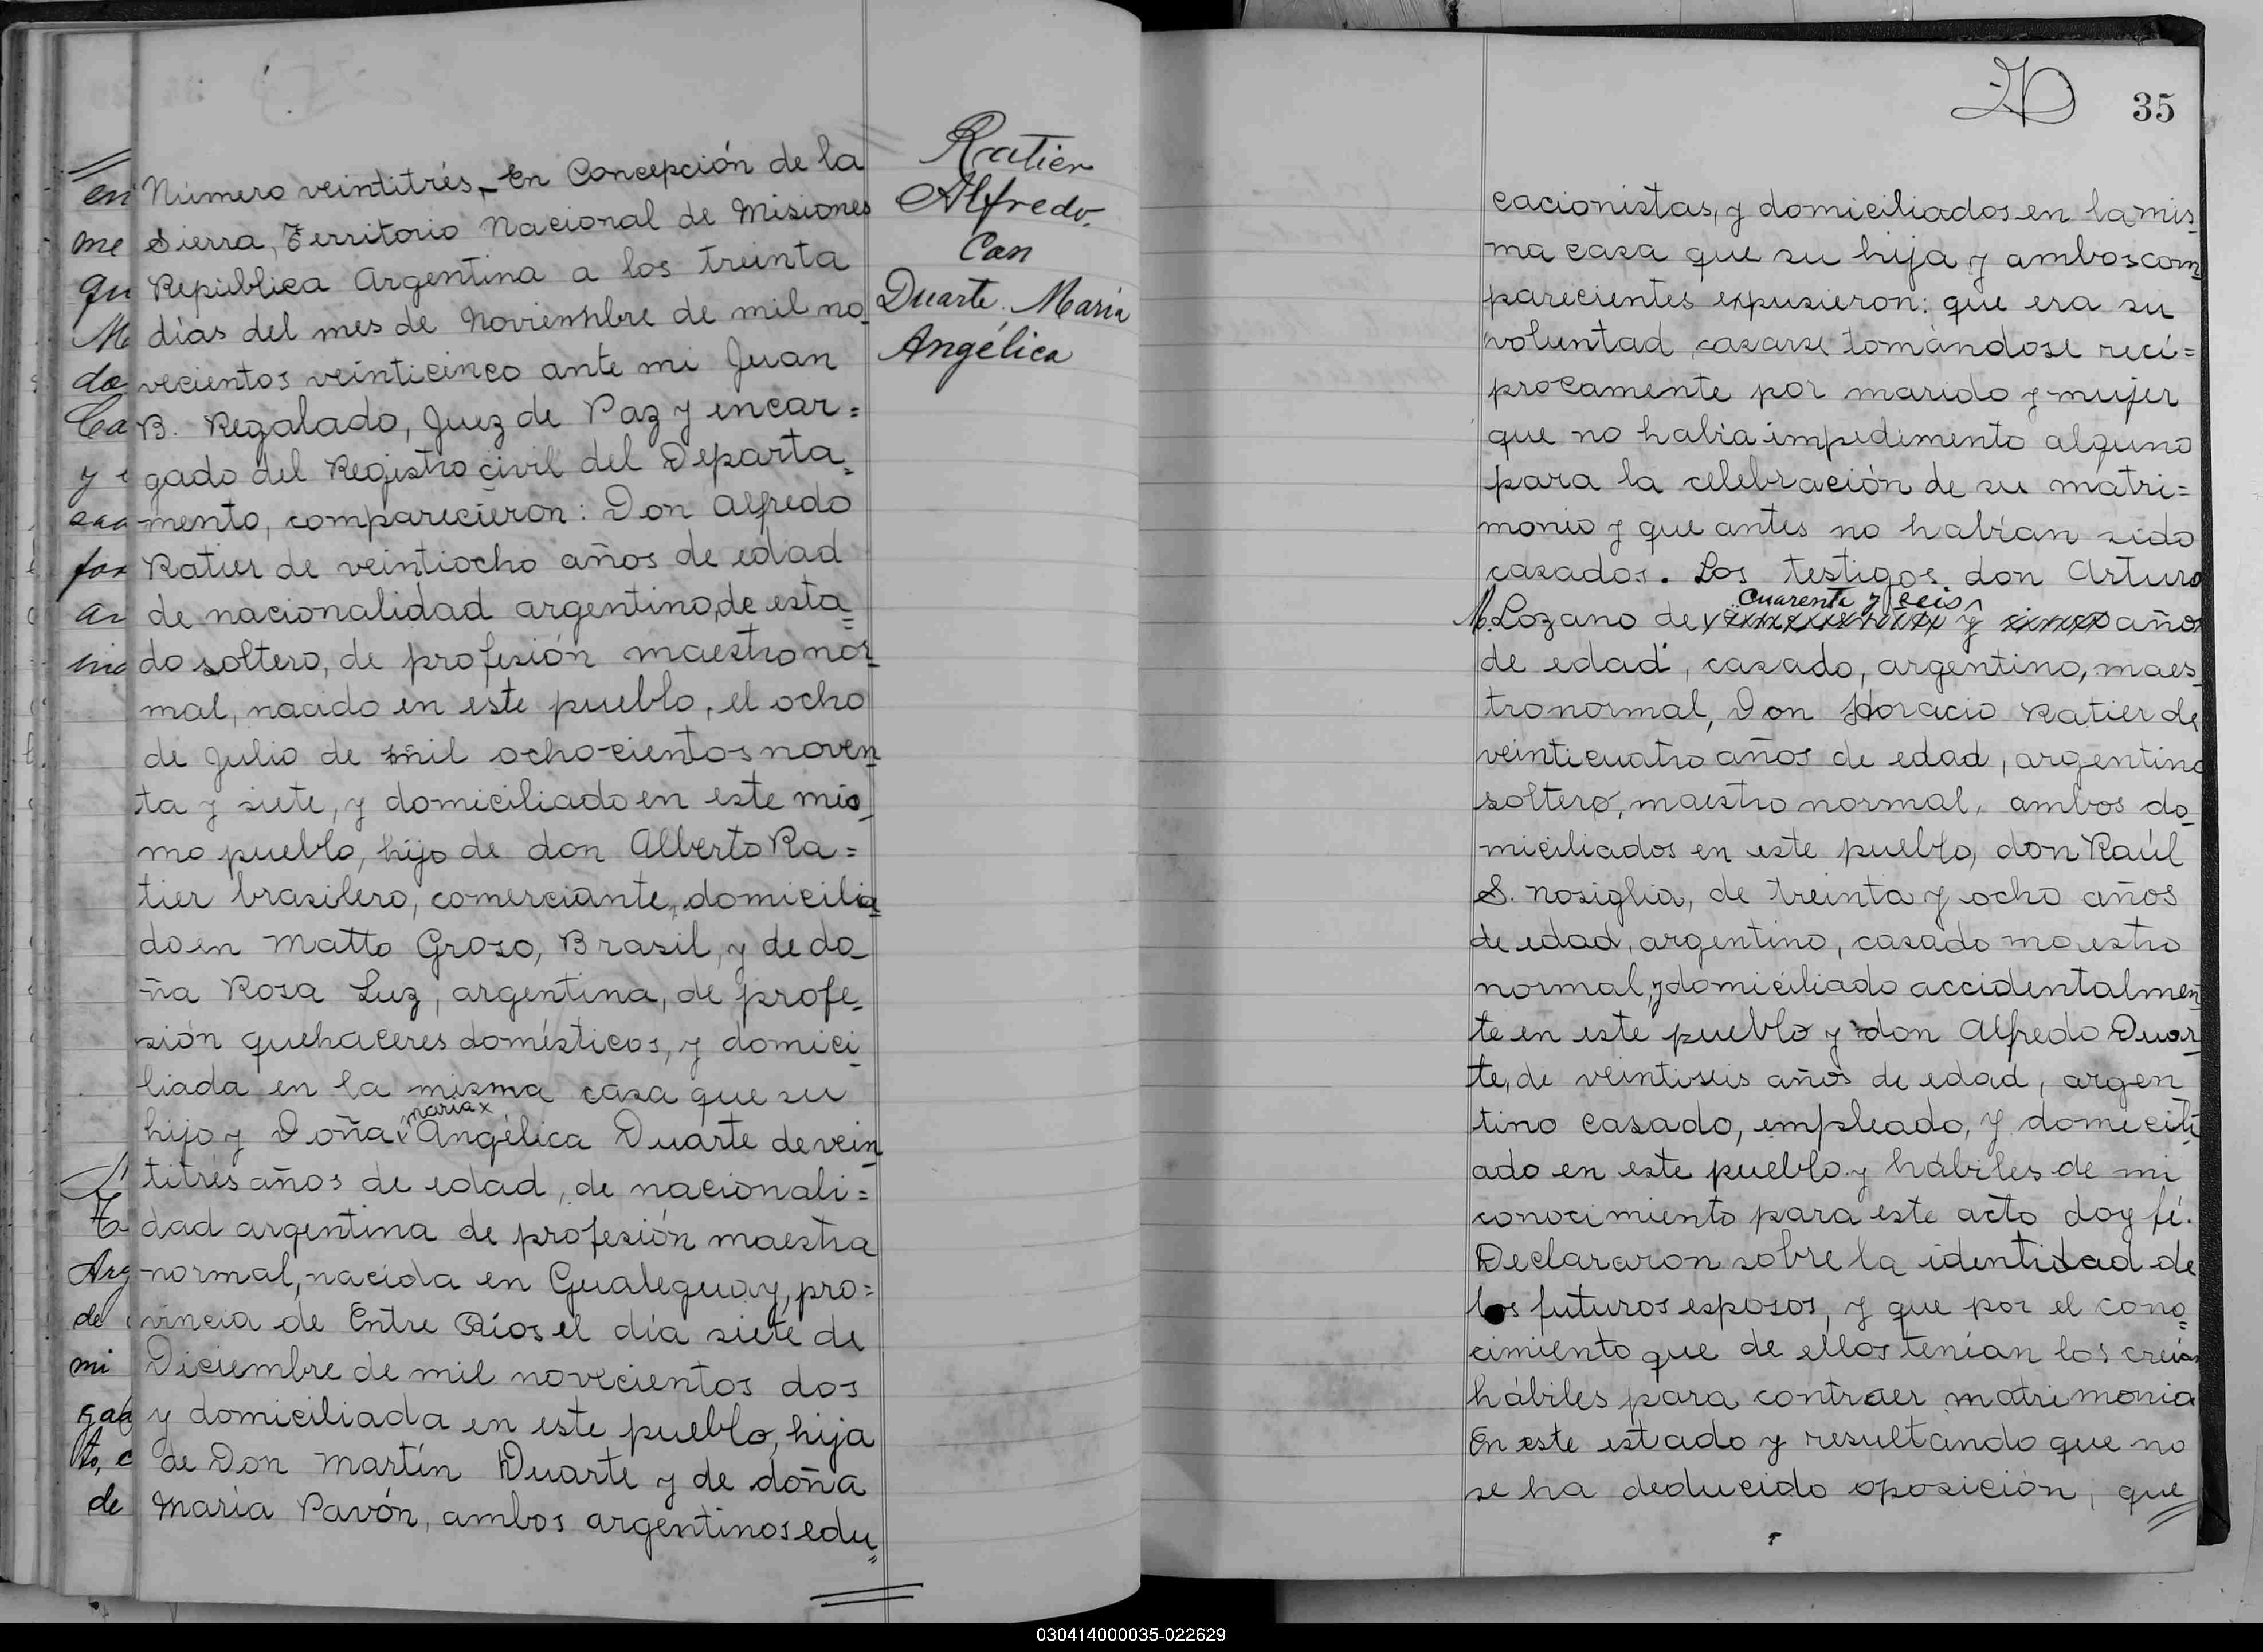 Número veintitrés.- En Concepción de la
Sierra, Territorio Nacional de Misiones
República Argentina a los treinta
días del mes de Noviembre de mil no-
vecientos veinticinco ante mi Juan
B. Regalado, Juez de Paz y encar=
gado del Registro civil del Departa=
mento, comparecieron: Don Alfredo
Ratier de veintiocho años de edad
de nacionalidad argentino, de esta=
do soltero, de profesión maestro nor-
mal, nacido en este pueblo, el ocho
de Julio de mil ochocientos noven-
ta y siete, y domiciliado en este mis-
mo pueblo, hijo de don Alberto Ra=
tier brasilero, comerciante, domicilia-
do en Matto Groso, Brasil, y de do-
ña Rosa Luz, argentina, de profe-
sión quehaceres domésticos, y domici-
liada en la misma casa que su
maria x
hijo y Doña x Angélica Duarte de vein-
titrés años de edad, de nacionali=
dad argentina de profesión maestra
normal, nacida en Gualeguay, pro=
vincia de Entre Ríos el día siete de
Diciembre de mil novecientos dos
y domiciliada en este pueblo, hija
de Don Martín Duarte y de doña
María Pavón, ambos argentinos edu=
Ratier
Alfredo.
Con
Duarte. María
Angélica
en
me
qu
M
do
Ca
y
for
ar
Arg
de
mi
gad
to, c
de
35
cacionistas, y domiciliados en la mis-
ma casa que su hija y ambos com-
parecientes expusieron: que era su
voluntad casarse tomándose recí=
procamente por marido y mujer
que no había impedimento alguno
para la celebración de su matri=
monio y que antes no habían sido
casados. Los testigos don Arturo
cuarenta y seis
M. Lozano de y años
de edad, casado, argentino, maes-
tro normal, Don Horacio Ratier de
veinticuatro años de edad, argentino
soltero, maestro normal, ambos do-
miciliados en este pueblo, don Raúl
S. Nosiglia, de treinta y ocho años
de edad, argentino, casado maestro
normal, y domiciliado accidentalmen-
te en este pueblo y don Alfredo Duar-
te, de veintiseis años de edad, argen
tino casado, empleado, y domicili-
ado en este pueblo y hábiles de mi
conocimiento para este acto doy fé.
Declararon sobre la identidad de
los futuros esposos, y que por el cono=
cimiento que de ellos tenían los creían
hábiles para contraer matrimonio
En este estado y resultando que no
se ha deducido oposición, que
030414000035-022629